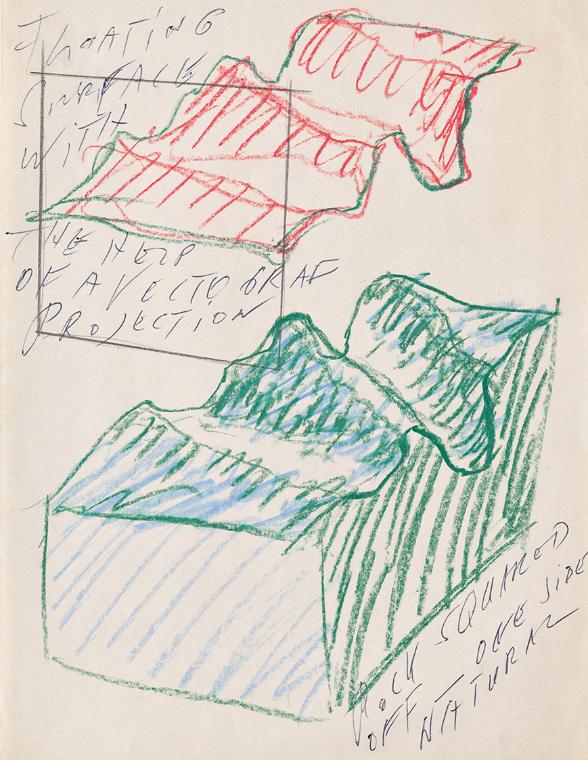 FLOATING
SURFACE
WITH
THE HELP
OF A VECTOGRAF
PROJECTION
ROCK SQUARED
OFF — ONE SIDE
NATURAL